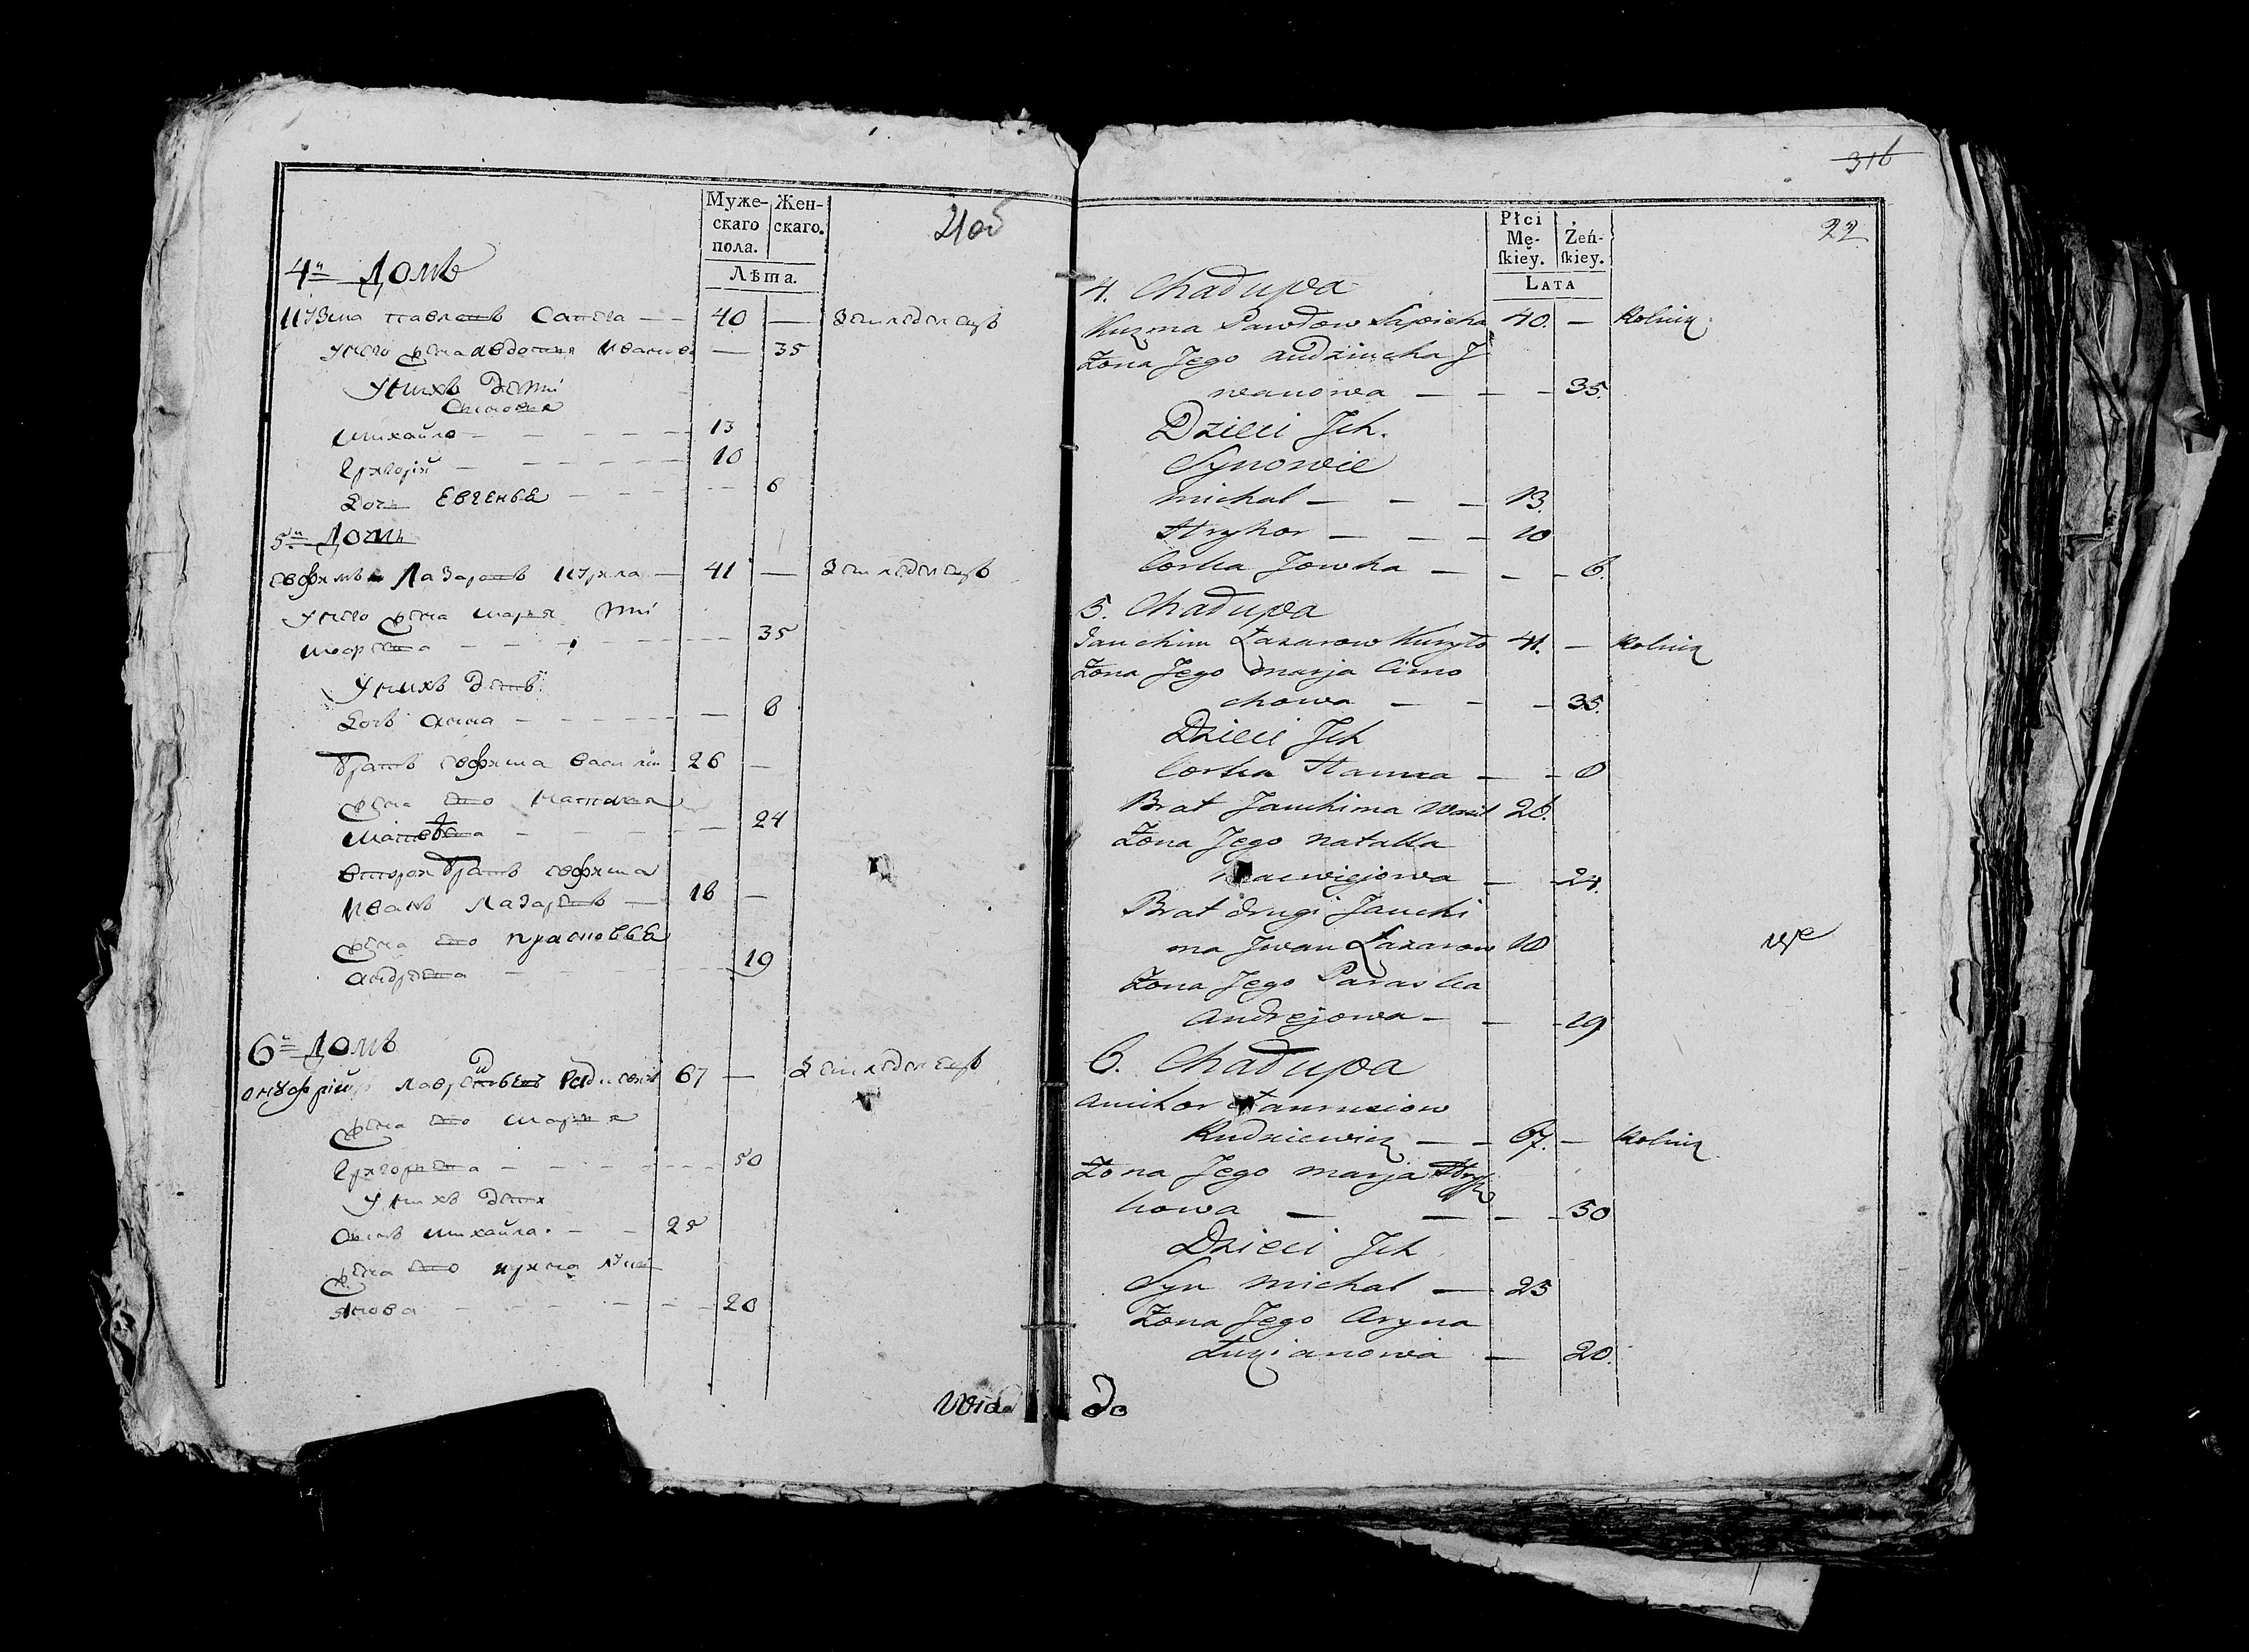 Муже-
скаго
пола.
Жен-
скаго.
Лѣта.
21об
4й Домъ
Кузма Павловъ Сапега — — 40 — Земледелецъ
У него жена Авдотья Иванова — 35
У нихъ дети
Сыновья
Михайло — 13
Григорій — 10
Дочь Евгенья — 6
5й Домъ
Ефимъ Лазаровъ Курила — 41 — Земледелецъ
У него жена Марья Тимофеева — 35
У нихъ дети
Дочь Анна — 8
Братъ Ефима Василій 26 —
Жена его Наталья
Матвеева — 24
Второй братъ Ефима
Иванъ Лазаровъ — 18 —
Жена его
Андреева — 19
6й Домъ
Онуфрій 67 — Земледелецъ
Жена его Марья
Григорьева — 50
У нихъ дети
Сынъ Михайла — 25
Жена его
20
Wida
316
22
Płci
Mę-
ſkiey.
Żeń-
ſkiey.
LATA
4. Chałupa
Kuzma Pawłow Sapieha 40. — Rolnik
Żona Jego Audziucha J
wanowa — — — 35.
Dzieci Jch.
Synowie
Michał — — — 13.
Hryhor — — — 10
Corka Jowka — — — 6.
5. Chałupa
Jauchim Łazarow Kuryło 41. — Rolnik
Żona Jego Marja Cimo
chowa — — — 35.
Dzieci Jch
Corka Hanna — — 8
Brat Jauchima Wasil 26.
Żona Jego Natalla
Maciejowa — 24.
Brat drugi Jauchi
ma Jwan Łazarow 18
Żona Jego Paraska
Andrejowa — — — 19
6. Chałupa
Anichor
Rudziewicz — — 67. — Rolnik
Żona Jego Marja Hryh
howa — — — — 50
Dzieci Jch
Syn Michał — 25
Żona Jego Aryna
Łucjanowa — 20.
do